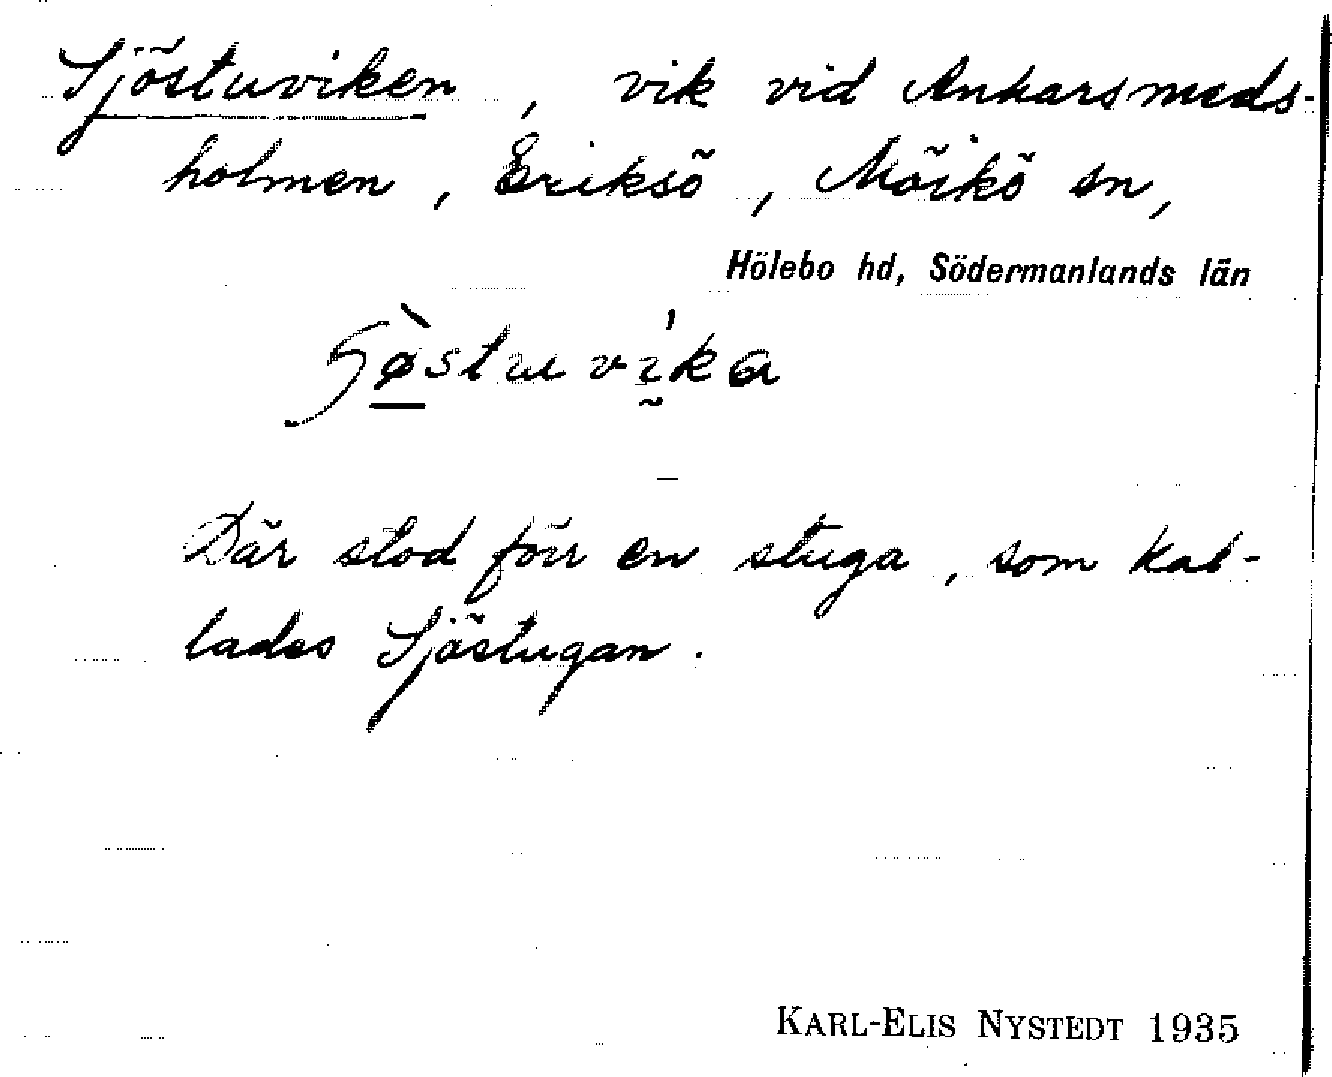 Sjöstuviken, vik vid Ankarsmeds-
holmen, Eriksö, Mörkö sn,
Hölebo hd, Södermanlands län
Där stod förr en stuga, som kal-
lades Sjöstugan.
KARL-ELIS NYSTEDT 1935